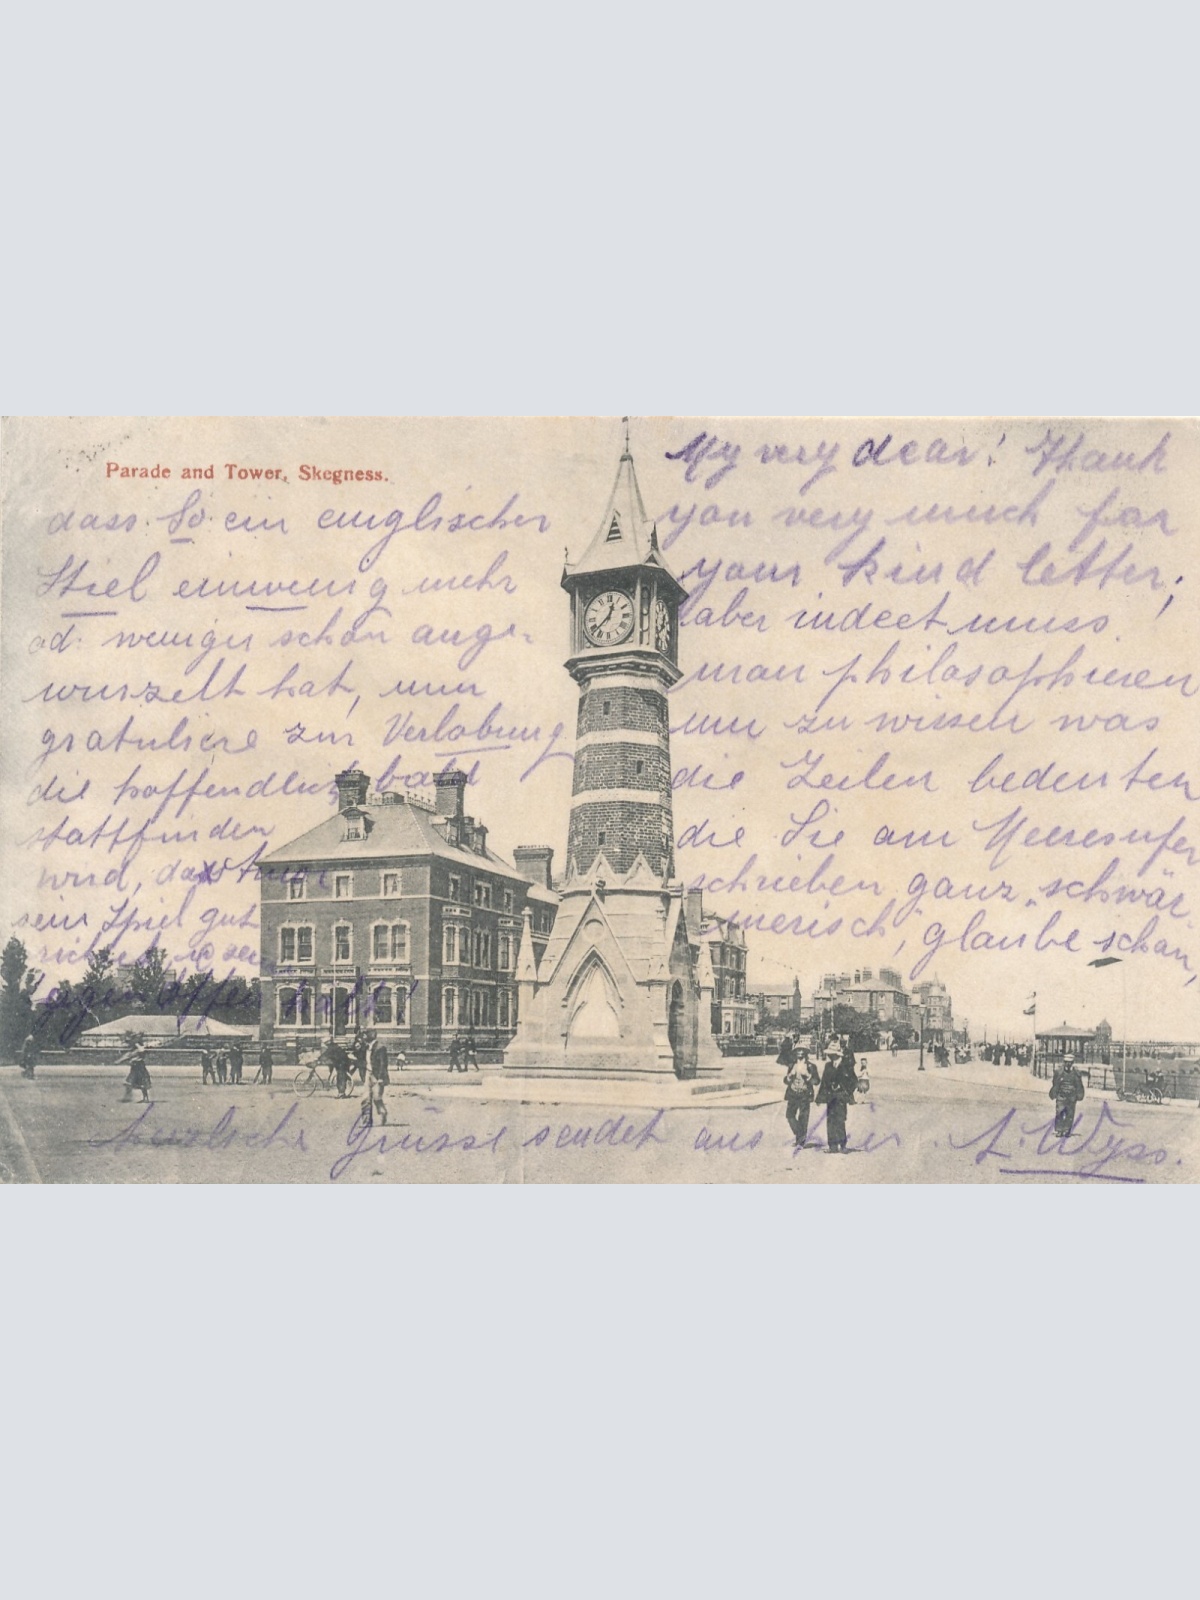 Parade and Tower, Skegness.
My very dear! Thank
you very much for
your kind letter;
aber indeet muss
man philosophieren
um zu wissen was
die Zeilen bedeuten
die Sie am Meeresufer
schrieben ganz „schwär
merisch", glaube schon,
dass So ein englischer
Stiel einwenig mehr
od: weniger schon ange-
wurzelt hat, nun
gratuliere zur Verlobung
die hoffendlich bald
stattfinden
wird, dass
sein Spiel gut
hält!
herzliche Grüsse sendet aus hier. A. Wyss.